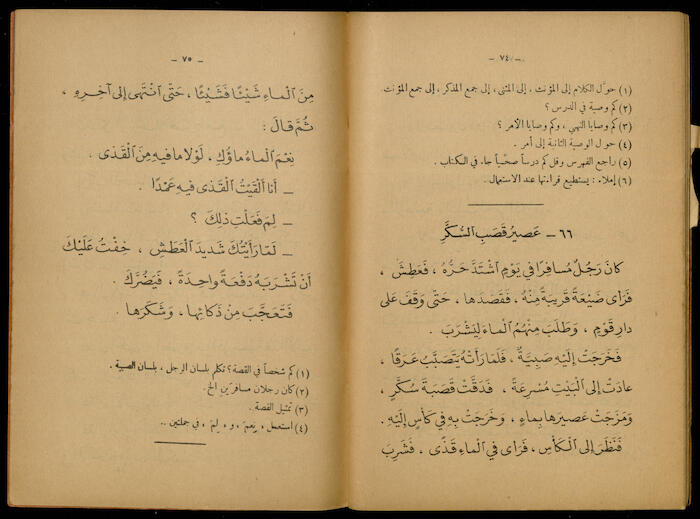 - ٧٤ -
(١) حوّل الكلام إلى المؤنث ، إلى المثنى ، إلى جمع المذكر ، إلى جمع المؤنث.
(٢) كم وصية في الدرس ؟
(٣) كم وصايا النهي ، وكم وصايا الأمر ؟
(٤) حول الوصية الثانية إلى أمر .
(٥) راجع الفهرس وقل كم درساً صحّياً جاء في الكتاب .
(٦) إملاء : يستطيع قراءتها عند الاستعمال .
٦٦ - عَصِيرُ قَصَبِ السُّكَّرِ
كَانَ رَجُلٌ مُسَافِرًا فِي يَوْمٍ اشْتَدَّ حَرُّهُ ، فَعَطِشَ ،
فَرَأَى ضَيْعَةً قَرِيبَةً مِنْهُ ، فَقَصَدَهَا ، حَتَّى وَقَفَ عَلَى
دَارِ قَوْمٍ ، وَطَلَبَ مِنْهُمُ الْمَاءَ لِيَشْرَبَ .
فَخَرَجَتْ إِلَيْهِ صَبِيَّةٌ ، فَلَمَّا رَأَتْهُ يَتَصَبَّبُ عَرَقًا ،
عَادَتْ إِلَى الْبَيْتِ مُسْرِعَةً ، فَدَقَّتْ قَصَبَةَ سُكَّرٍ ،
وَمَزَجَتْ عَصِيرَهَا بِمَاءٍ ، وَخَرَجَتْ بِهِ فِي كَأْسٍ إِلَيْهِ .
فَنَظَرَ إِلَى الْكَأْسِ ، فَرَأَى فِي الْمَاءِ قَذًى ، فَشَرِبَ
- ٧٥ -
مِنَ الْمَاءِ شَيْئًا فَشَيْئًا ، حَتَّى انْتَهَى إِلَى آخِرِهِ ،
ثُمَّ قَالَ :
نِعْمَ الْمَاءُ مَاؤُكِ ، لَوْلَا مَا فِيهِ مِنَ الْقَذَى .
– أَنَا أَلْقَيْتُ الْقَذَى فِيهِ عَمْدًا .
– لِمَ فَعَلْتِ ذٰلِكَ ؟
– لَمَّا رَأَيْتُكَ شَدِيدَ الْعَطَشِ ، خِفْتُ عَلَيْكَ
أَنْ تَشْرَبَهُ دَفْعَةً وَاحِدَةً ، فَيَضُرَّكَ .
فَتَعَجَّبَ مِنْ ذَكَائِهَا ، وَشَكَرَهَا .
(١) كم شخصاً في القصة؟ تكلم بلسان الرجل ، بلسان الصبية .
(٢) كان رجلان مسافرَين الخ .
(٣) تمثيل القصة .
(٤) استعمل « نِعمَ » و « لِمَ » في جملتين ..